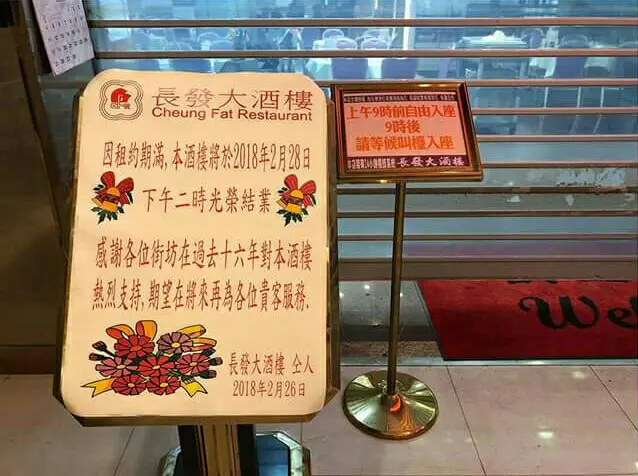 長發大酒樓
Cheung Fat Restaurant
因租約期滿,本酒樓將於2018年2月28日
下午二時光榮結業
感謝各位街坊在過去十六年對本酒樓
熱烈支持,期望在將來再為各位貴客服務.
長發大酒樓 仝人
2018年2月26日
上午9時前自由入座
9時後
請等候叫檯入座
長發大酒樓
We